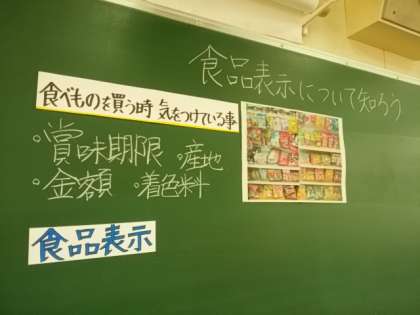 食品表示について知ろう
食べものを買う時 気をつけている事
・賞味期限 ・産地
・金額 ・着色料
食品表示